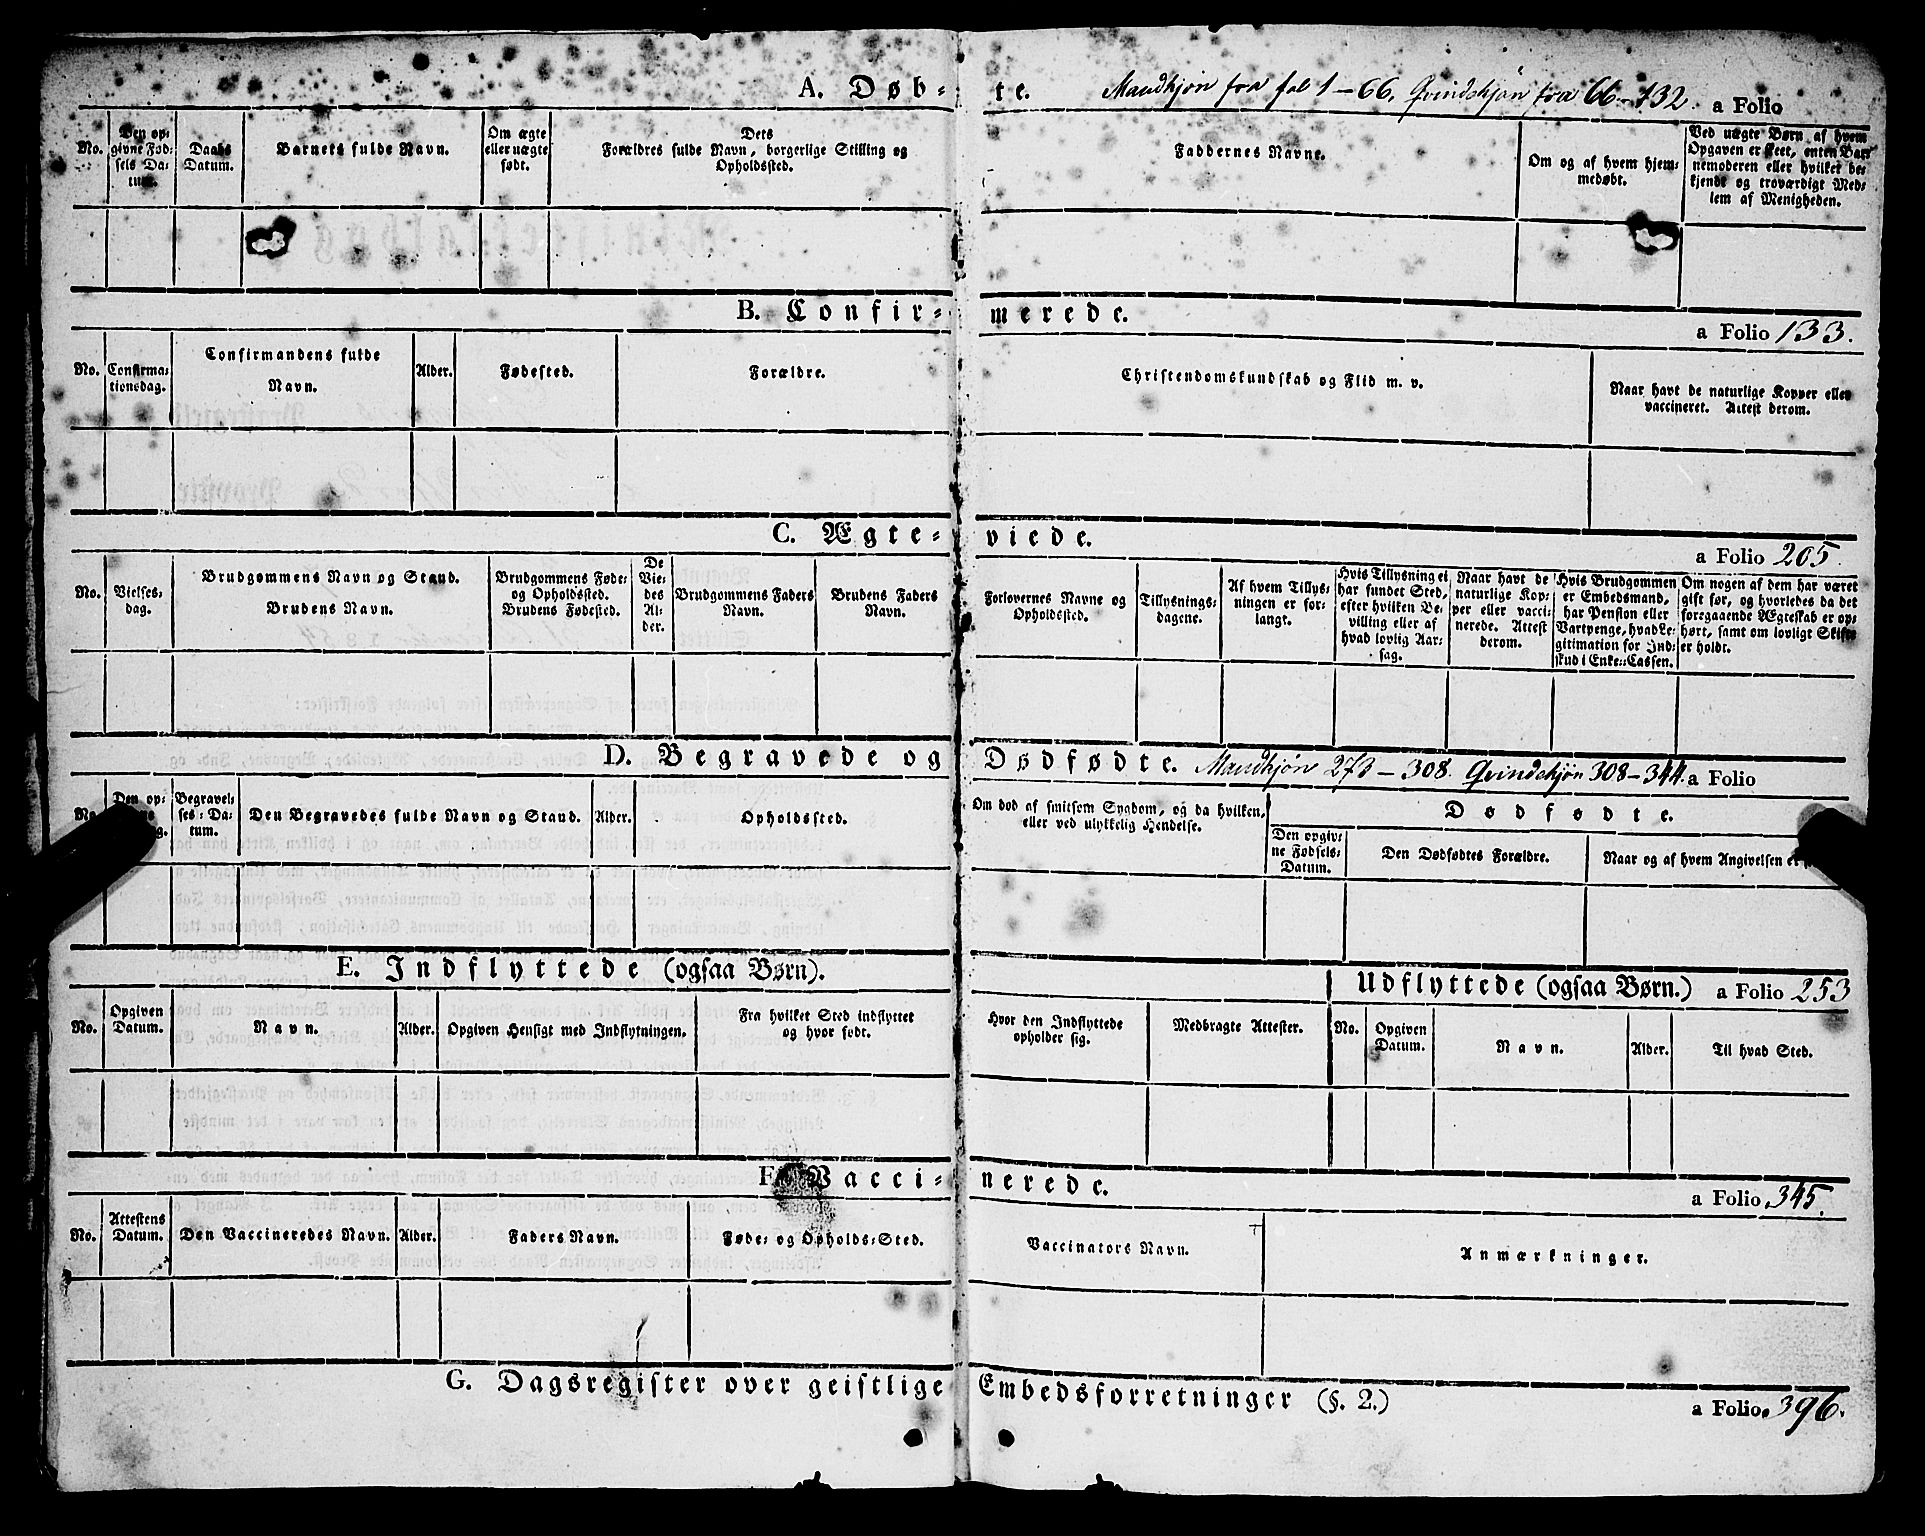 A. Døb- te. Mandkjøn fra fol 1 – 66. Qvindekjøn fra 66 – 132. a Folio
No.
Den op-
givne Fød-
sels Da-
tum.
Daabs
Datum.
Barnets fulde Navn.
Om ægte
eller uægte
født.
Dets
Forældres fulde Navn, borgerlige Stilling og
Opholdssted.
Faddernes Navne.
Om og af hvem hjem-
medøbt.
Ved uægte Børn af hvem
Opgaven er skeet, enten Bar-
nemoderen eller hvilket be-
kjendt og troværdigt Med-
lem af Menigheden.
B. Confir- merede.
a Folio 133.
No.
Confirma-
tionsdag.
Confirmandens fulde
Navn.
Alder.
Fødested.
Forældre.
Christendomskundskab og Flid m. v.
Naar havt de naturlige Kopper eller
vaccineret. Attest derom.
C. Ægte- viede.
a Folio 205.
No.
Vielses-
dag.
Brudgommens Navn og Stand.
Brudens Navn.
Brudgommens Føde-
og Opholdssted.
Brudens Fødested.
De
Vie-
des
Al-
der.
Brudgommens Faders
Navn.
Brudens Faders
Navn.
Forlovernes Navne og
Opholdssted.
Tillysnings-
dagene.
Af hvem Tillys-
ningen er for-
langt.
Hvis Tillysning ei
har fundet Sted,
efter hvilken Be-
villing eller af
hvad lovlig Aar-
sag.
Naar havt de
naturlige Kop-
per eller vacci-
nerede. Attest
derom.
Hvis Brudgommen
er Embedsmand,
har Pension eller
Vartpenge, hvad Le-
gitimation for Ind-
skud i Enke-Cassen.
Om nogen af dem har været
gift før, og hvorledes da det
foregaaende Ægteskab er op-
hørt, samt om lovligt Skifte
er holdt.
D. Begravede og Dødfødte. Mandkjøn 273 – 308. Qvindekjøn 308 – 344. a Folio
No.
Den op-
Begravel-
ses- Da-
tum.
Den Begravedes fulde Navn og Stand.
Alder.
Opholdssted.
Om død af smitsom Sygdom, og da hvilken,
eller ved ulykkelig Hendelse.
Dødfødte.
Den opgiv-
ne Fødsels-
Datum.
Den Dødfødtes Forældre.
Naar og af hvem Angivelsen er
E. Indflyttede (ogsaa Børn).
Udflyttede (ogsaa Børn.) a Folio 253
No.
Opgiven
Datum.
Navn.
Alder.
Opgiven Hensigt med Indflytningen.
Fra hvilket Sted indflyttet
og hvor født.
Hvor den Indflyttede
opholder sig.
Medbragte Attester.
No.
Opgiven
Datum.
Navn.
Alder.
Til hvad Sted.
F. Vacci- nerede.
a Folio 345.
No.
Attestens
Datum.
Den Vaccineredes Navn.
Alder.
Faders Navn.
Føde- og Opholds-Sted.
Vaccinators Navn.
Anmærkninger.
G. Dagsregister over geistlige Embedsforretninger (§. 2.)
a Folio. 396.